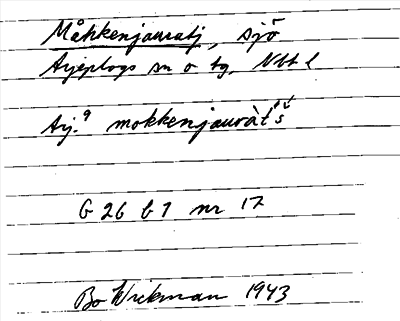 Måkkenjauratj, sjö
Arjeplogs sn o tg, Nbt l
Arj.9 mokkenjauràt's̀
G 26 b 7 nr 17
Bo Wickman 1943